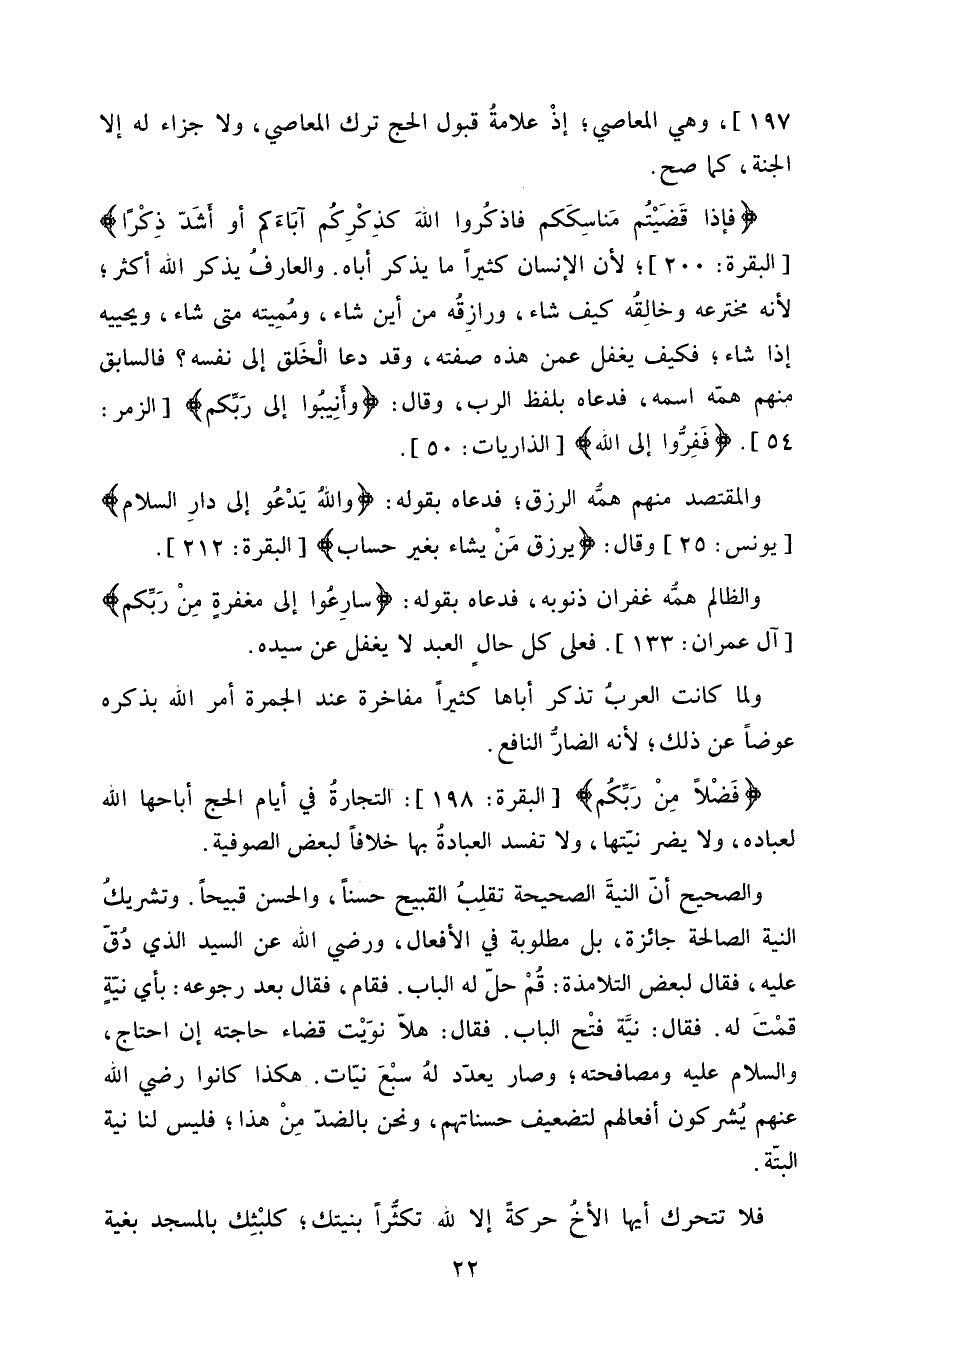 ١٩٧]، وهي المعاصي؛ إذْ علامةُ قبول الحج ترك المعاصي، ولا جزاء له إلا
الجنة، كما صح.
﴿فإذا قَضَيْتُم مَناسِكَكم فاذكُروا اللهَ كذِكْرِكُم آبَاءَكم أو أَشَدّ ذِكْرًا﴾
[البقرة: ٢٠٠]؛ لأن الإنسان كثيراً ما يذكر أباه. والعارفُ يذكر الله أكثر؛
لأنه مخترعه وخالِقُه كيف شاء، ورازِقُه من أين شاء، ومُمِيته متى شاء، ويحييه
إذا شاء؛ فكيف يغفل عمن هذه صفته، وقد دعا الْخَلق إلى نفسه؟ فالسابق
منهم همّه اسمه، فدعاه بلفظ الرب، وقال: ﴿وأَنِيبُوا إلى رَبِّكم﴾ [الزمر:
٥٤]. ﴿فَفِرُّوا إلى الله﴾ [الذاريات: ٥٠].
والمقتصد منهم همُّه الرزق؛ فدعاه بقوله: ﴿واللهُ يَدْعُو إلى دارِ السلام﴾
[يونس: ٢٥] وقال: ﴿يرزق مَنْ يشاء بغير حساب﴾ [البقرة: ٢١٢].
والظالم همُّه غفران ذنوبه، فدعاه بقوله: ﴿سارِعُوا إلى مغفرةٍ مِنْ رَبِّكم﴾
[آل عمران: ١٣٣]. فعلى كل حالٍ العبد لا يغفل عن سيده.
ولما كانت العربُ تذكر أباها كثيراً مفاخرة عند الجمرة أمر الله بذكره
عوضاً عن ذلك؛ لأنه الضارُّ النافع.
﴿فَضْلاً مِنْ رَبِّكُم﴾ [البقرة: ١٩٨]: التجارةُ في أيام الحج أباحها الله
لعباده، ولا يضر نيّتها، ولا تفسد العبادةُ بها خلافاً لبعض الصوفية.
والصحيح أنّ النيةَ الصحيحة تقلِبُ القبيح حسناً، والحسن قبيحاً. وتشريكُ
النية الصالحة جائزة، بل مطلوبة في الأفعال، ورضي الله عن السيد الذي دُقّ
عليه، فقال لبعض التلامذة: قُمْ حلّ له الباب. فقام، فقال بعد رجوعه: بأي نيّةٍ
قمْتَ له. فقال: نيَّة فتْح الباب. فقال: هلاّ نوَيْت قضاء حاجته إن احتاج،
والسلام عليه ومصافحته؛ وصار يعدّد لهُ سبْعَ نيّات. هكذا كانوا رضي الله
عنهم يُشركون أفعالهم لتضعيف حسناتهم، ونحن بالضدّ مِنْ هذا؛ فليس لنا نية
البتّة.
فلا تتحرك أيها الأخُ حركةً إلا لله تكثُّراً بنيتك؛ كلبْثِك بالمسجد بغية
٢٢